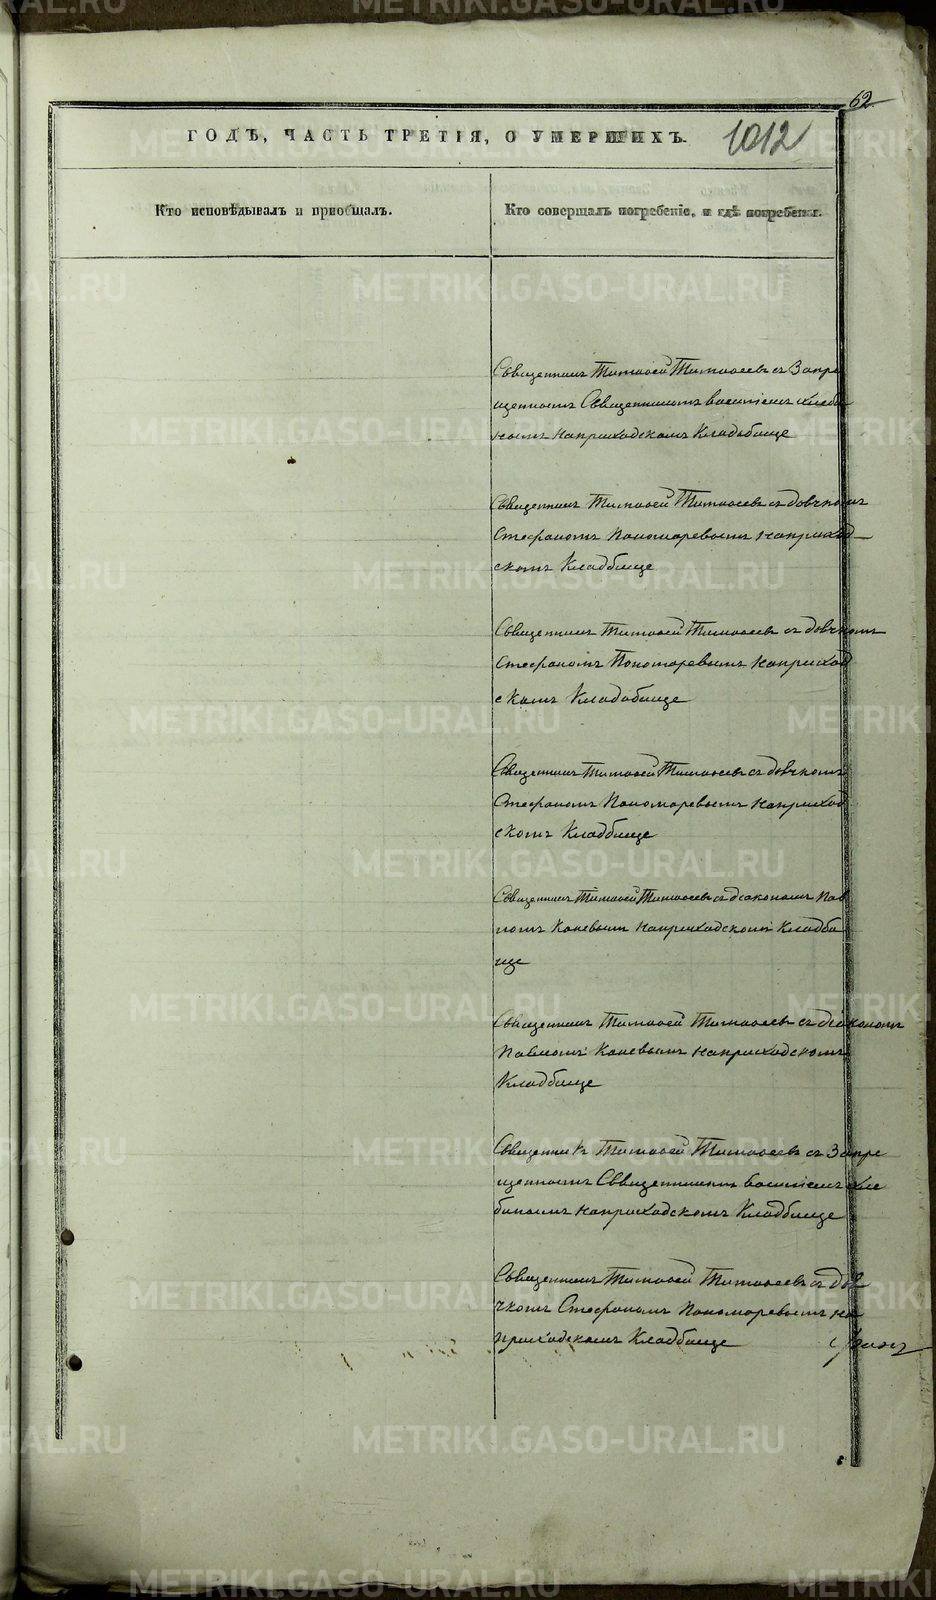 62
ГОДѢ, ЧАСТЬ ТРЕТІЯ, О УМЕРШИХЪ.
1012
Кто исповѣдывалъ и пріобщалъ.
Кто совершалъ погребеніе, и гдѣ погребены.
Священникъ Тимофей Тимофеевъ съ Запре
щеннымъ Священникомъ Василіемъ Хлѣби
нымъ на приходскомъ Кладбище
Священникъ Тимофей Тимофеевъ съ дьячкомъ
Стефаномъ Пономаревымъ на приход
скомъ Кладбище
Священникъ Тимофей Тимофеевъ съ дьячкомъ
Стефаномъ Пономаревымъ на приход
скомъ Кладбище
Священникъ Тимофей Тимофеевъ съ дьячкомъ
Стефаномъ Пономаревымъ на приход
скомъ Кладбище
Священникъ Тимофей Тимофеевъ съ діакономъ Пав
ломъ Каневымъ на приходскомъ Кладби
ще
Священникъ Тимофей Тимофеевъ съ діакономъ
Павломъ Каневымъ на приходскомъ
Кладбище
Священникъ Тимофей Тимофеевъ съ Запре
щеннымъ Священникомъ Василіемъ Хлѣ
бинымъ на приходскомъ Кладбище
Священникъ Тимофей Тимофеевъ съ дья
чкомъ Стефаномъ Пономаревымъ на
приходскомъ Кладбище
METRIKI.GASO-URAL.RU